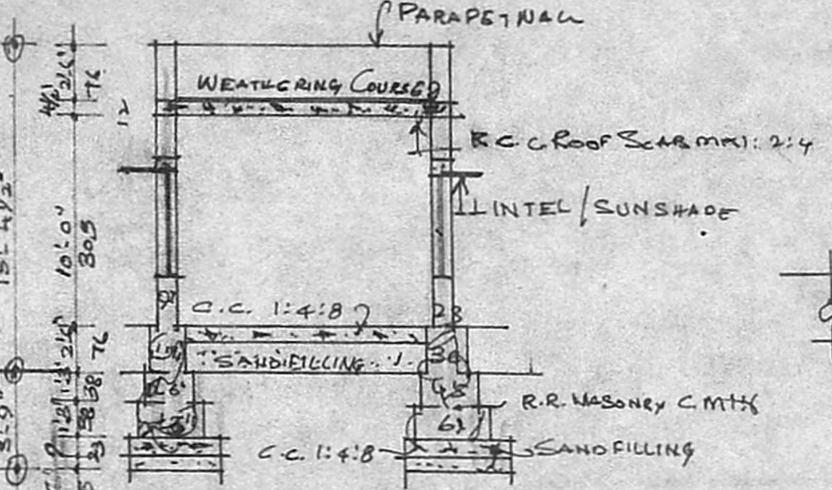 PARAPETWALL
WEATHERING COURSE
R.C.C. ROOF SLAB MIX 1:2:4
LINTEL / SUNSHADE
C.C. 1:4:8
23
SANDFILLING
R.R. MASONRY C.M 1:6
C.C. 1:4:8
SANDFILLING
2'-6"
76
10'-0"
305
76
1'-3"
38
1'-3"
38
9"
23
3'-9"